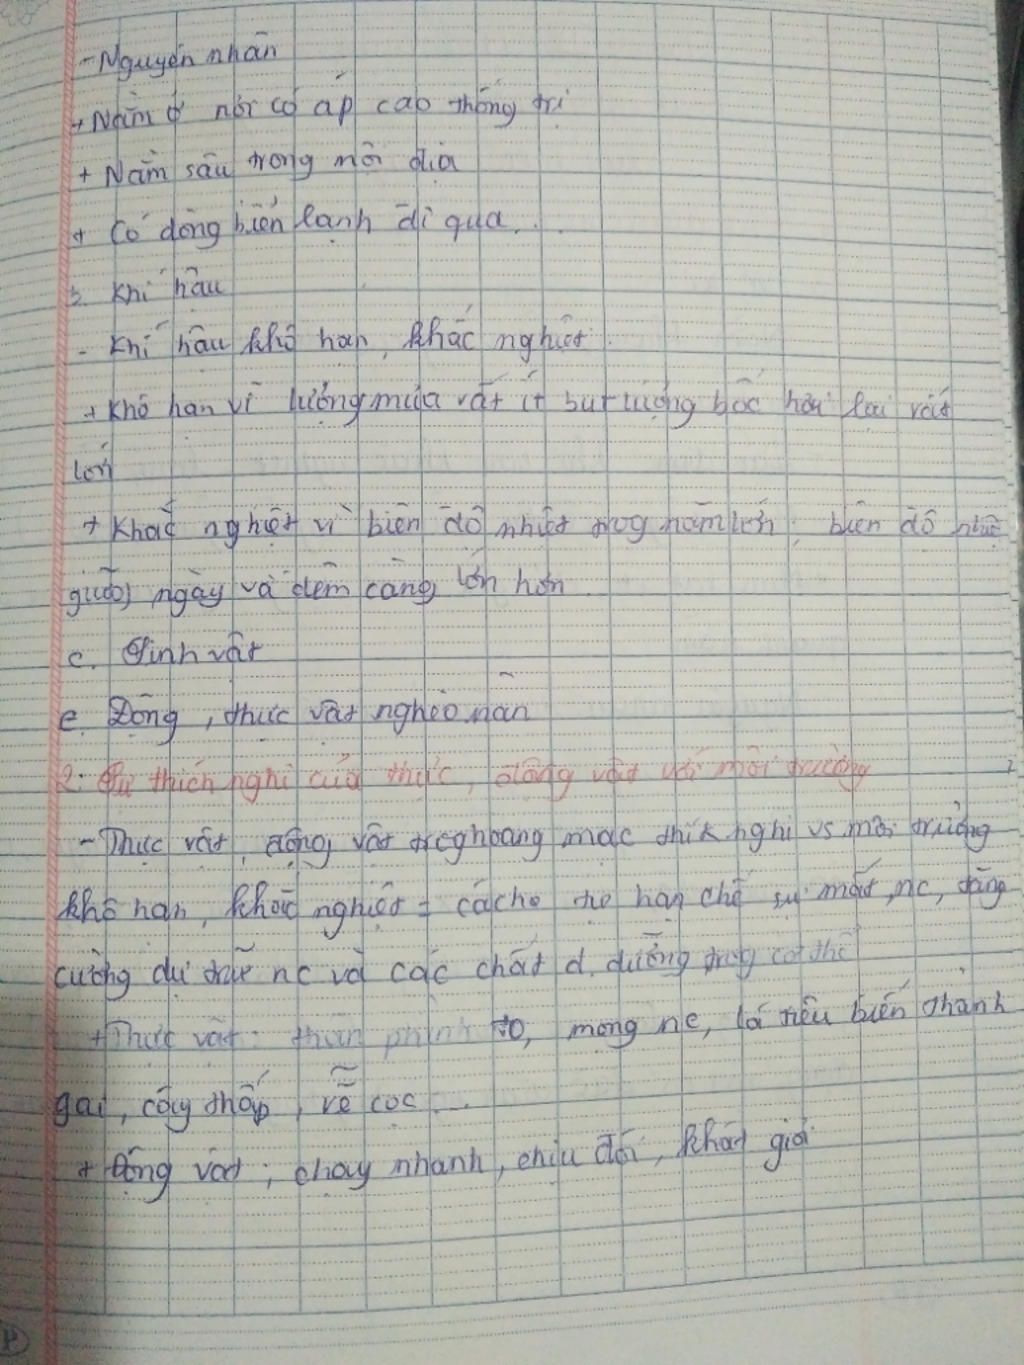 - Nguyên nhân
+ Nằm ở nơi có áp cao thống trị
+ Nằm sâu trong nội địa
+ Có dòng biển lạnh đi qua...
b. Khí hậu
- Khí hậu khô hạn, khắc nghiệt.
+ Khô hạn vì lượng mưa rất ít sut lượng bốc hơi lại rất
lớn
+ Khắc nghiệt vì biên độ nhiệt trog năm lớn, biên độ nhiệt
giữa ngày và đêm càng lớn hơn
c. Sinh vật
e. Động, thực vật nghèo nàn
2. Sự thích nghi của thực, động vật với môi trường
- Thực vật, động vật trog hoang mạc thík nghi vs môi trường
khô hạn, khắc nghiệt = cách tự hạn chế sự mất nc, tăng
cường dự trữ nc và các chất d. dưỡng trog cơ thể
+ Thực vật: thân phình to, mọng nc, lá tiêu biến thành
gai, cây thấp, rễ cọc...
+ Động vật; chạy nhanh, chịu đói, khát giỏi